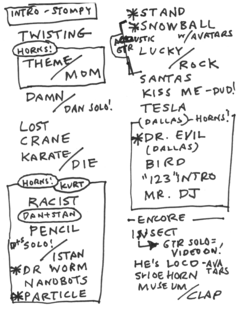 INTRO - STOMPY
TWISTING
HORNS!
THEME/
MOM
DAMN/
DAN SOLO!
LOST
CRANE
KARATE/
DIE
HORNS! KURT
RACIST
DAN+STAN
PENCIL
SOLO!/
ISTAN
*DR WORM
NANOBOTS
*PARTICLE
*STAND
*SNOWBALL
W/AVATARS
ACOUSTIC
GTR
LUCKY/
ROCK
SANTAS
KISS ME-DUD!
TESLA
(DALLAS)-HORNS?
*DR. EVIL
(DALLAS)
BIRD
"123" INTRO
MR. DJ
-ENCORE-
INSECT
GTR SOLO=
VIDEO ON!
HE'S LOCO-AVA
TARS
SHOEHORN
MUSEUM/
CLAP